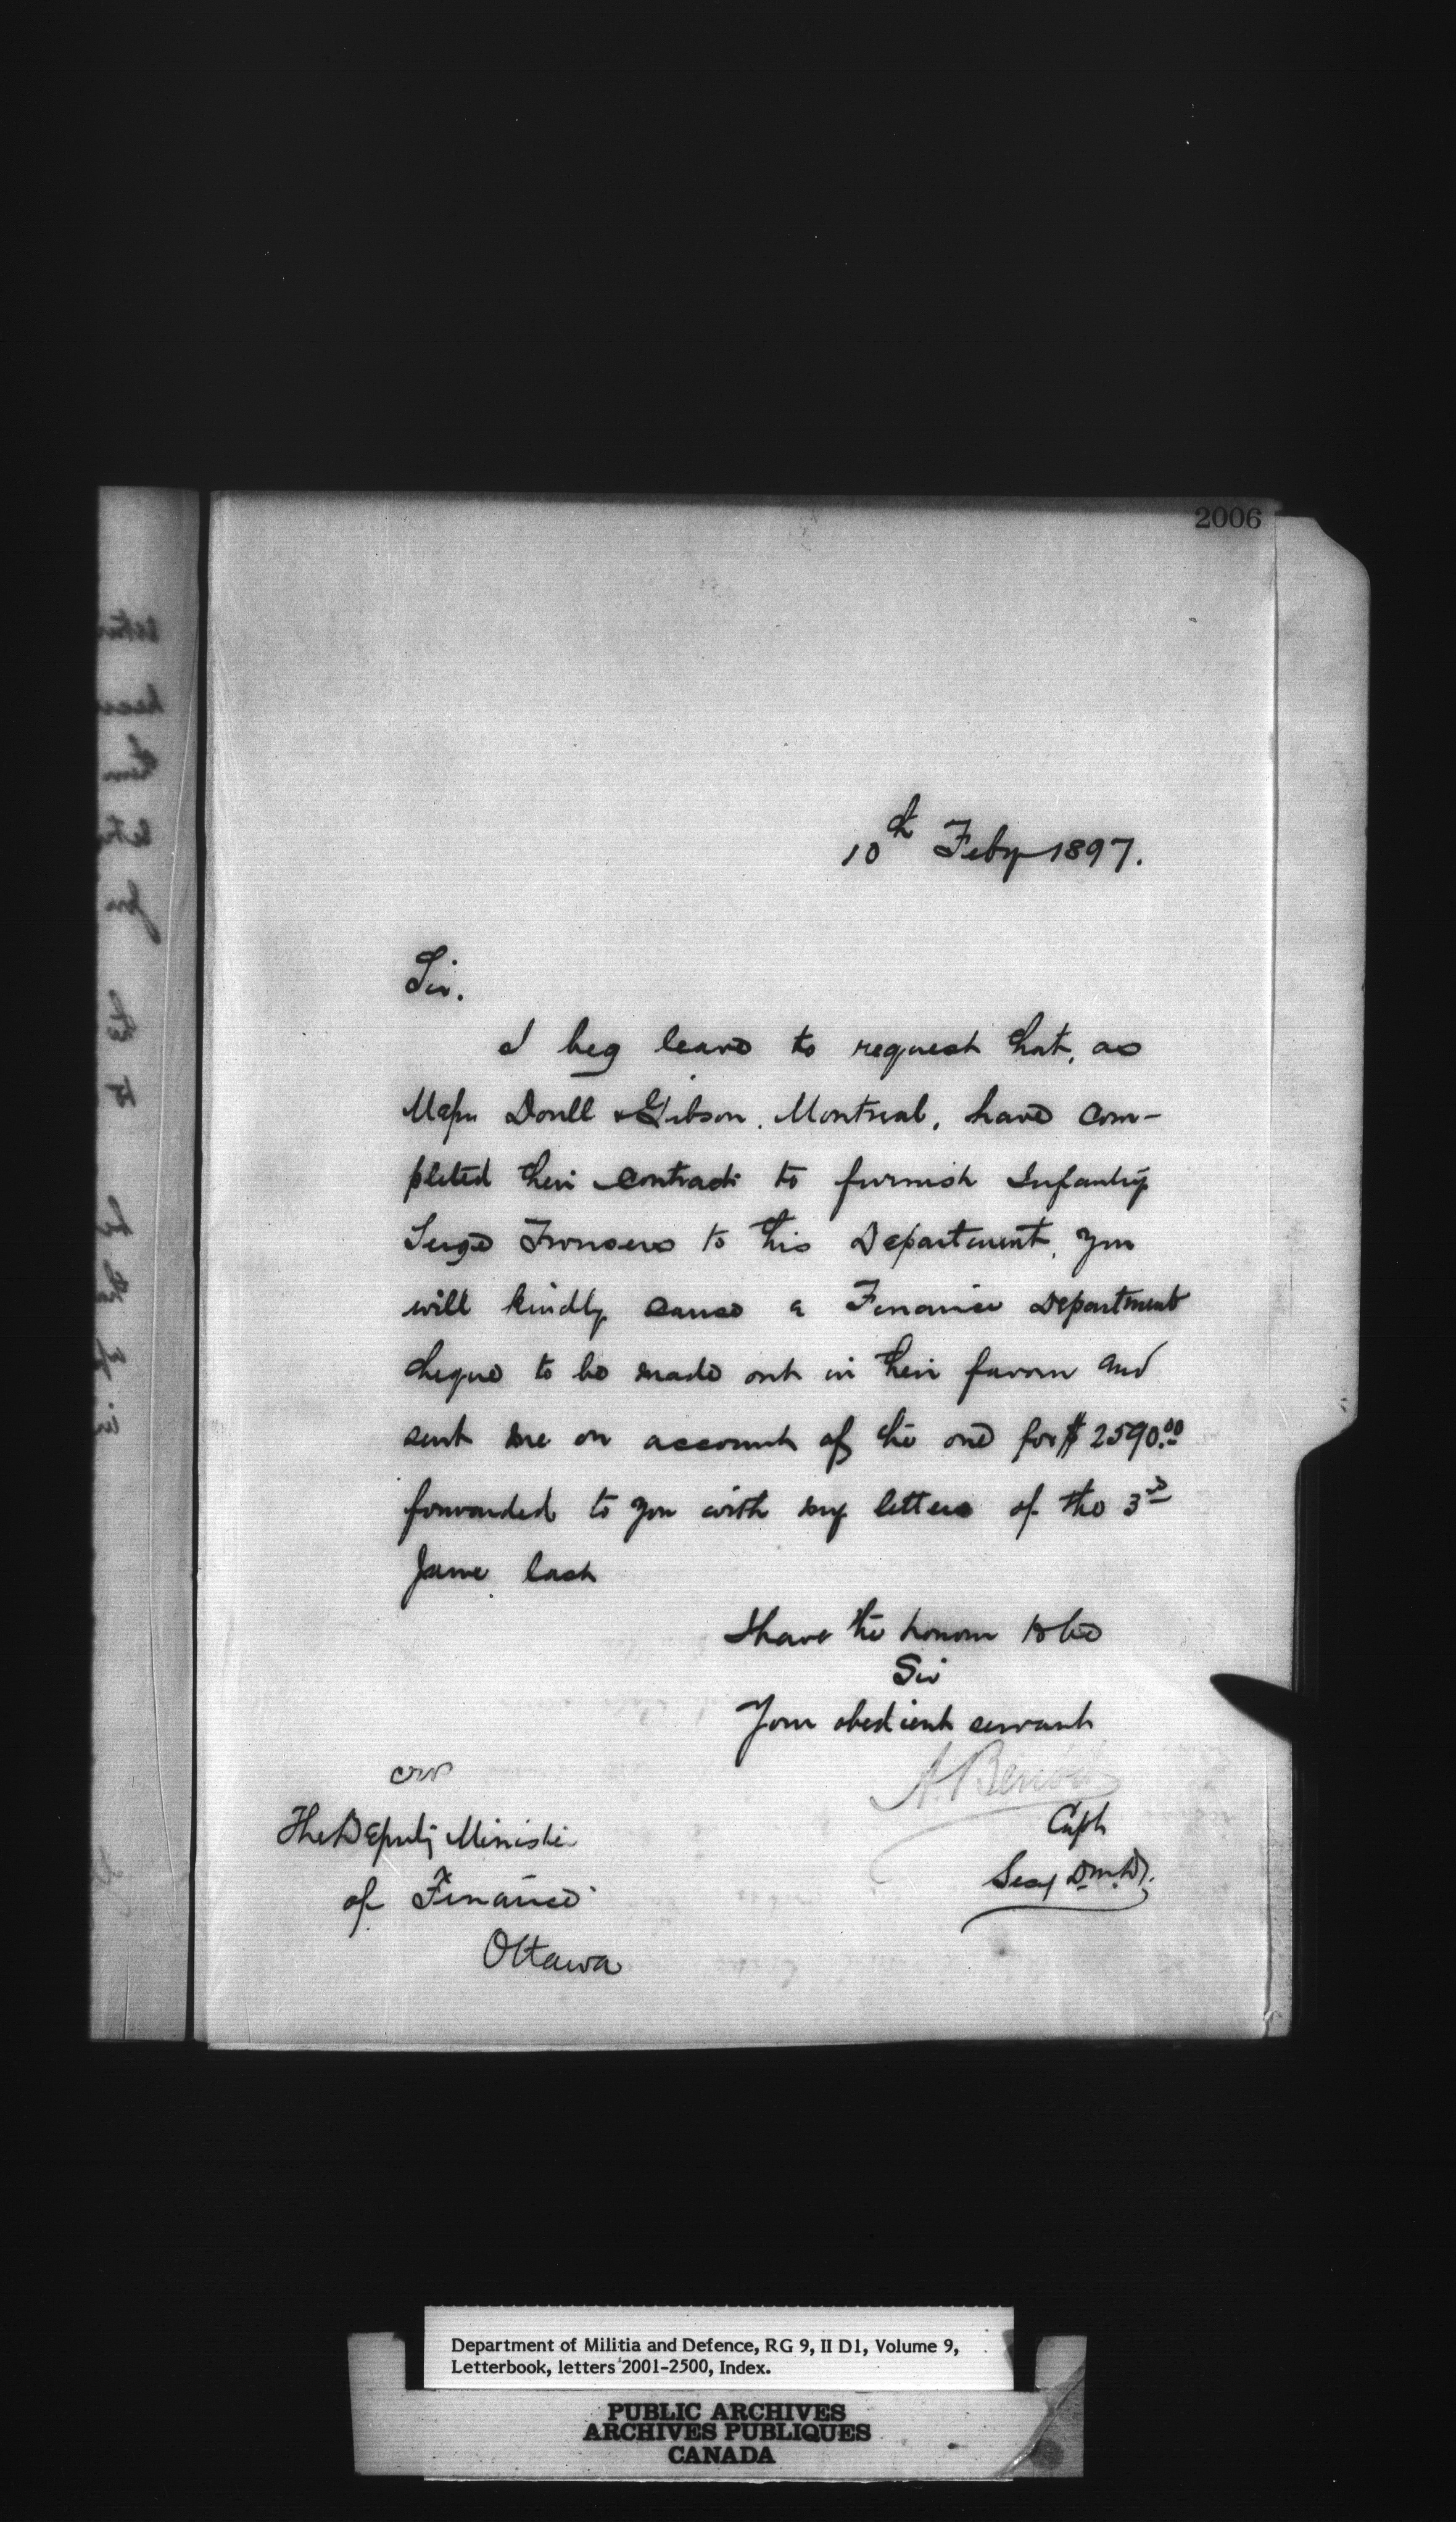 2006
10th Feby 1897.
Sir.
I beg leave to request that, as
Messrs Doull & Gibson, Montreal, have com-
pleted their contract to furnish Infantry
Serge Trousers to this Department, you
will kindly cause a Finance Department
cheque to be made out in their favour and
sent me on account of the one for $2590.00
forwarded to you with my letter of the 3rd
June last
I have the honour to be
Sir
Your obedient servant
A. Benoit
Capt
Secy D.M.D.
The Deputy Minister
of Finance
Ottawa
Department of Militia and Defence, RG 9, II D1, Volume 9,
Letterbook, letters 2001-2500, Index.
PUBLIC ARCHIVES
ARCHIVES PUBLIQUES
CANADA